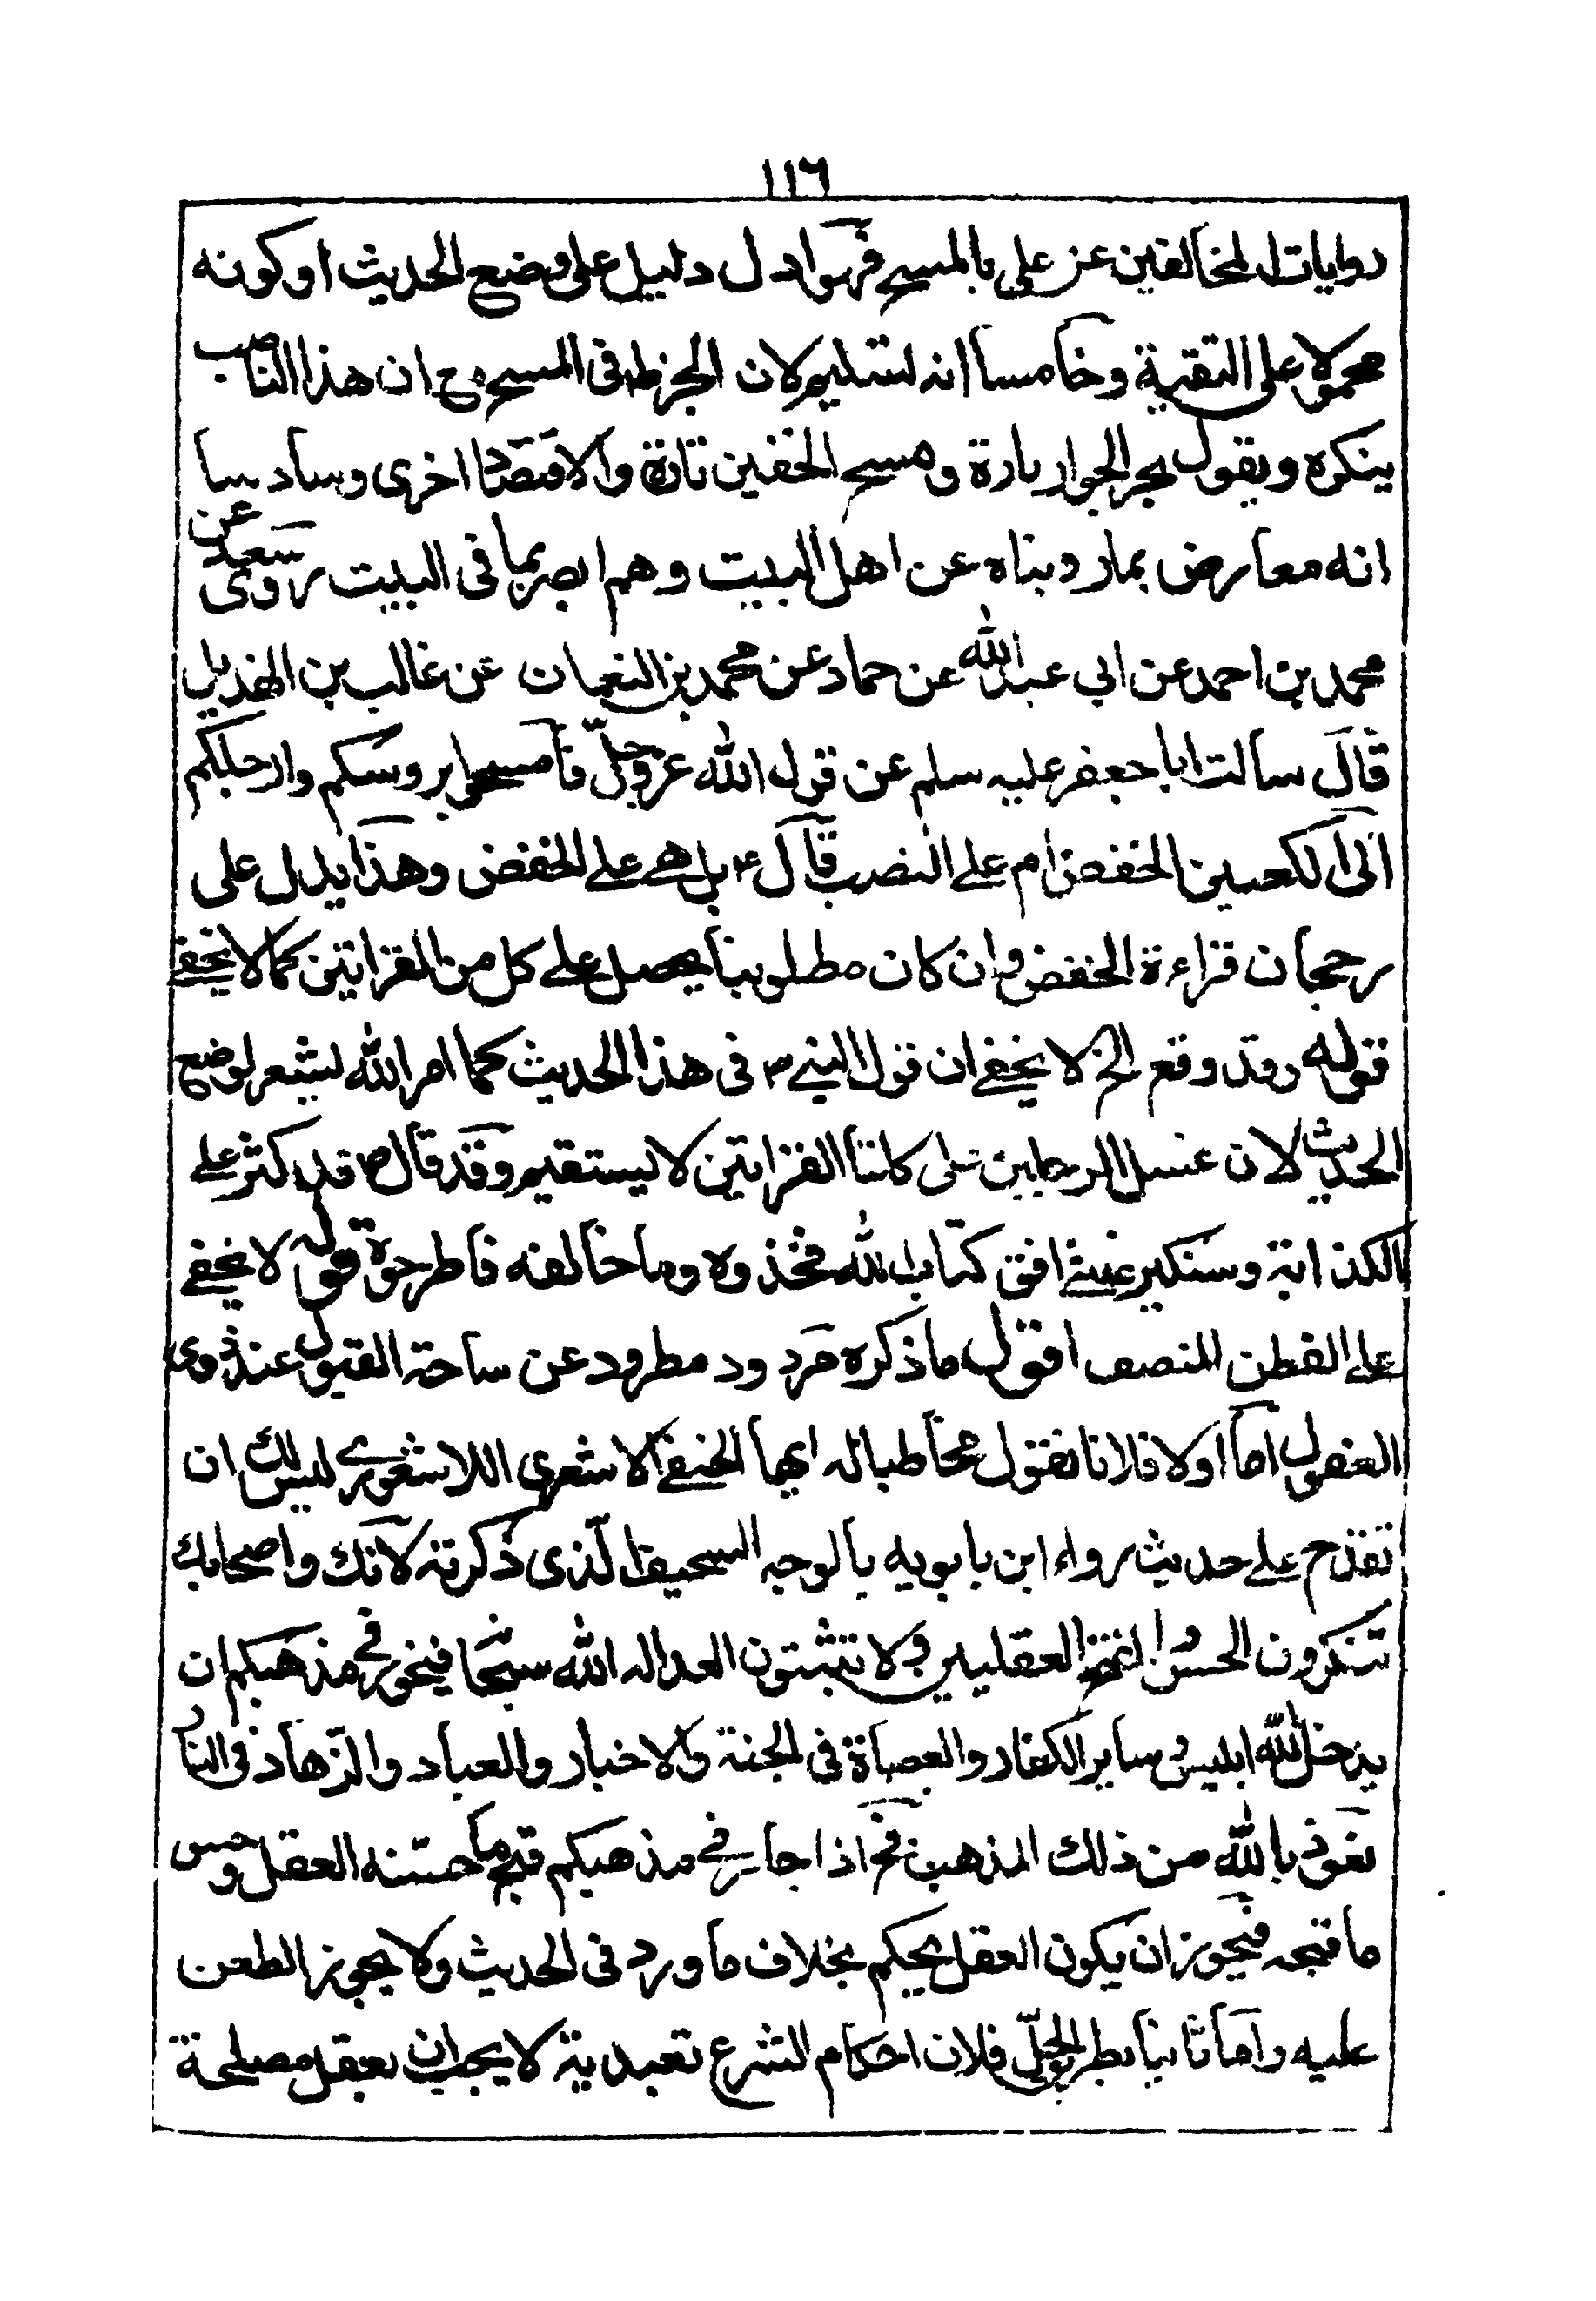 ١١٦
روايات المخالفين عن علی بالمسح فهو ادل دليل علی وضع الحديث او كونه
محمولا علی التقية وخامسا انه لتسليم لان الجر ظ فی المسح مع ان هذا الناصب
ينكره ويقول بجر الجوار بارة ومسح الخفين تارة والاقتصاد اخری وسادسا
انه معارض بما رويناه عن اهل البيت وهم ابصر بما فی البيت روی سعد عن
محمد بن احمد عن ابی عبد الله عن حماد عن محمد بن النعمان عن غالب بن الهذيل
قال سالت ابا جعفر عليه سلم عن قول الله عز وجل فامسحوا بروسكم وارجلكم
الی الكعبين الخفض ام علی النصب قال ع بل هے علی الخفض وهذا يدل علی
رجحان قراءة الخفض وان كان مطلوبنا يحصل علی كل من القراتين كما لا يخفے
قوله وقد وقع الخ لا يخفے ان قول النبے ص فی هذا الحديث كما امر الله ليشعر لوضع
الحديث لان غسل الرجلين علی كلتا القراتين لا يستقيم وقد قال ص قد كثر علے
الكذابة وستكير فما وافق كتاب الله فخذوه وما خالفه فاطرحوه قوله لا يخفے
علے الفطن المنصف اقول ما ذكره مردود مطرود عن ساحة القبول عند ذوی
العقول اما اولا فلانا نقول مخاطبا له ايها الحنفے الاشعری اللاشعوری ليس لك ان
تقدح علے حديث رواه ابن بابويه بالوجه السحيق الذی ذكرته لانك واصحابك
تنكرون الحسن والقبح العقليين ولا تثبتون العدالة الله سبحا فيجوز فے مذهبكم ان
يدخل الله ابليس وساير الكفار والعصاة فی الجنة والاخيار والعباد والزهاد فی النار
نعوذ بالله من ذلك المذهب فح اذا جاز فے مذهبكم قبح ما حسنه العقل وحسن
ما قبحه فيجوز ان يكون العقل يحكم بخلاف ما ورد فی الحديث ولا يجوز الطعن
عليه واما ثانيا بطريق الحل فلان احكام الشرع تعبدية لا يجب ان يعقل مصلحة